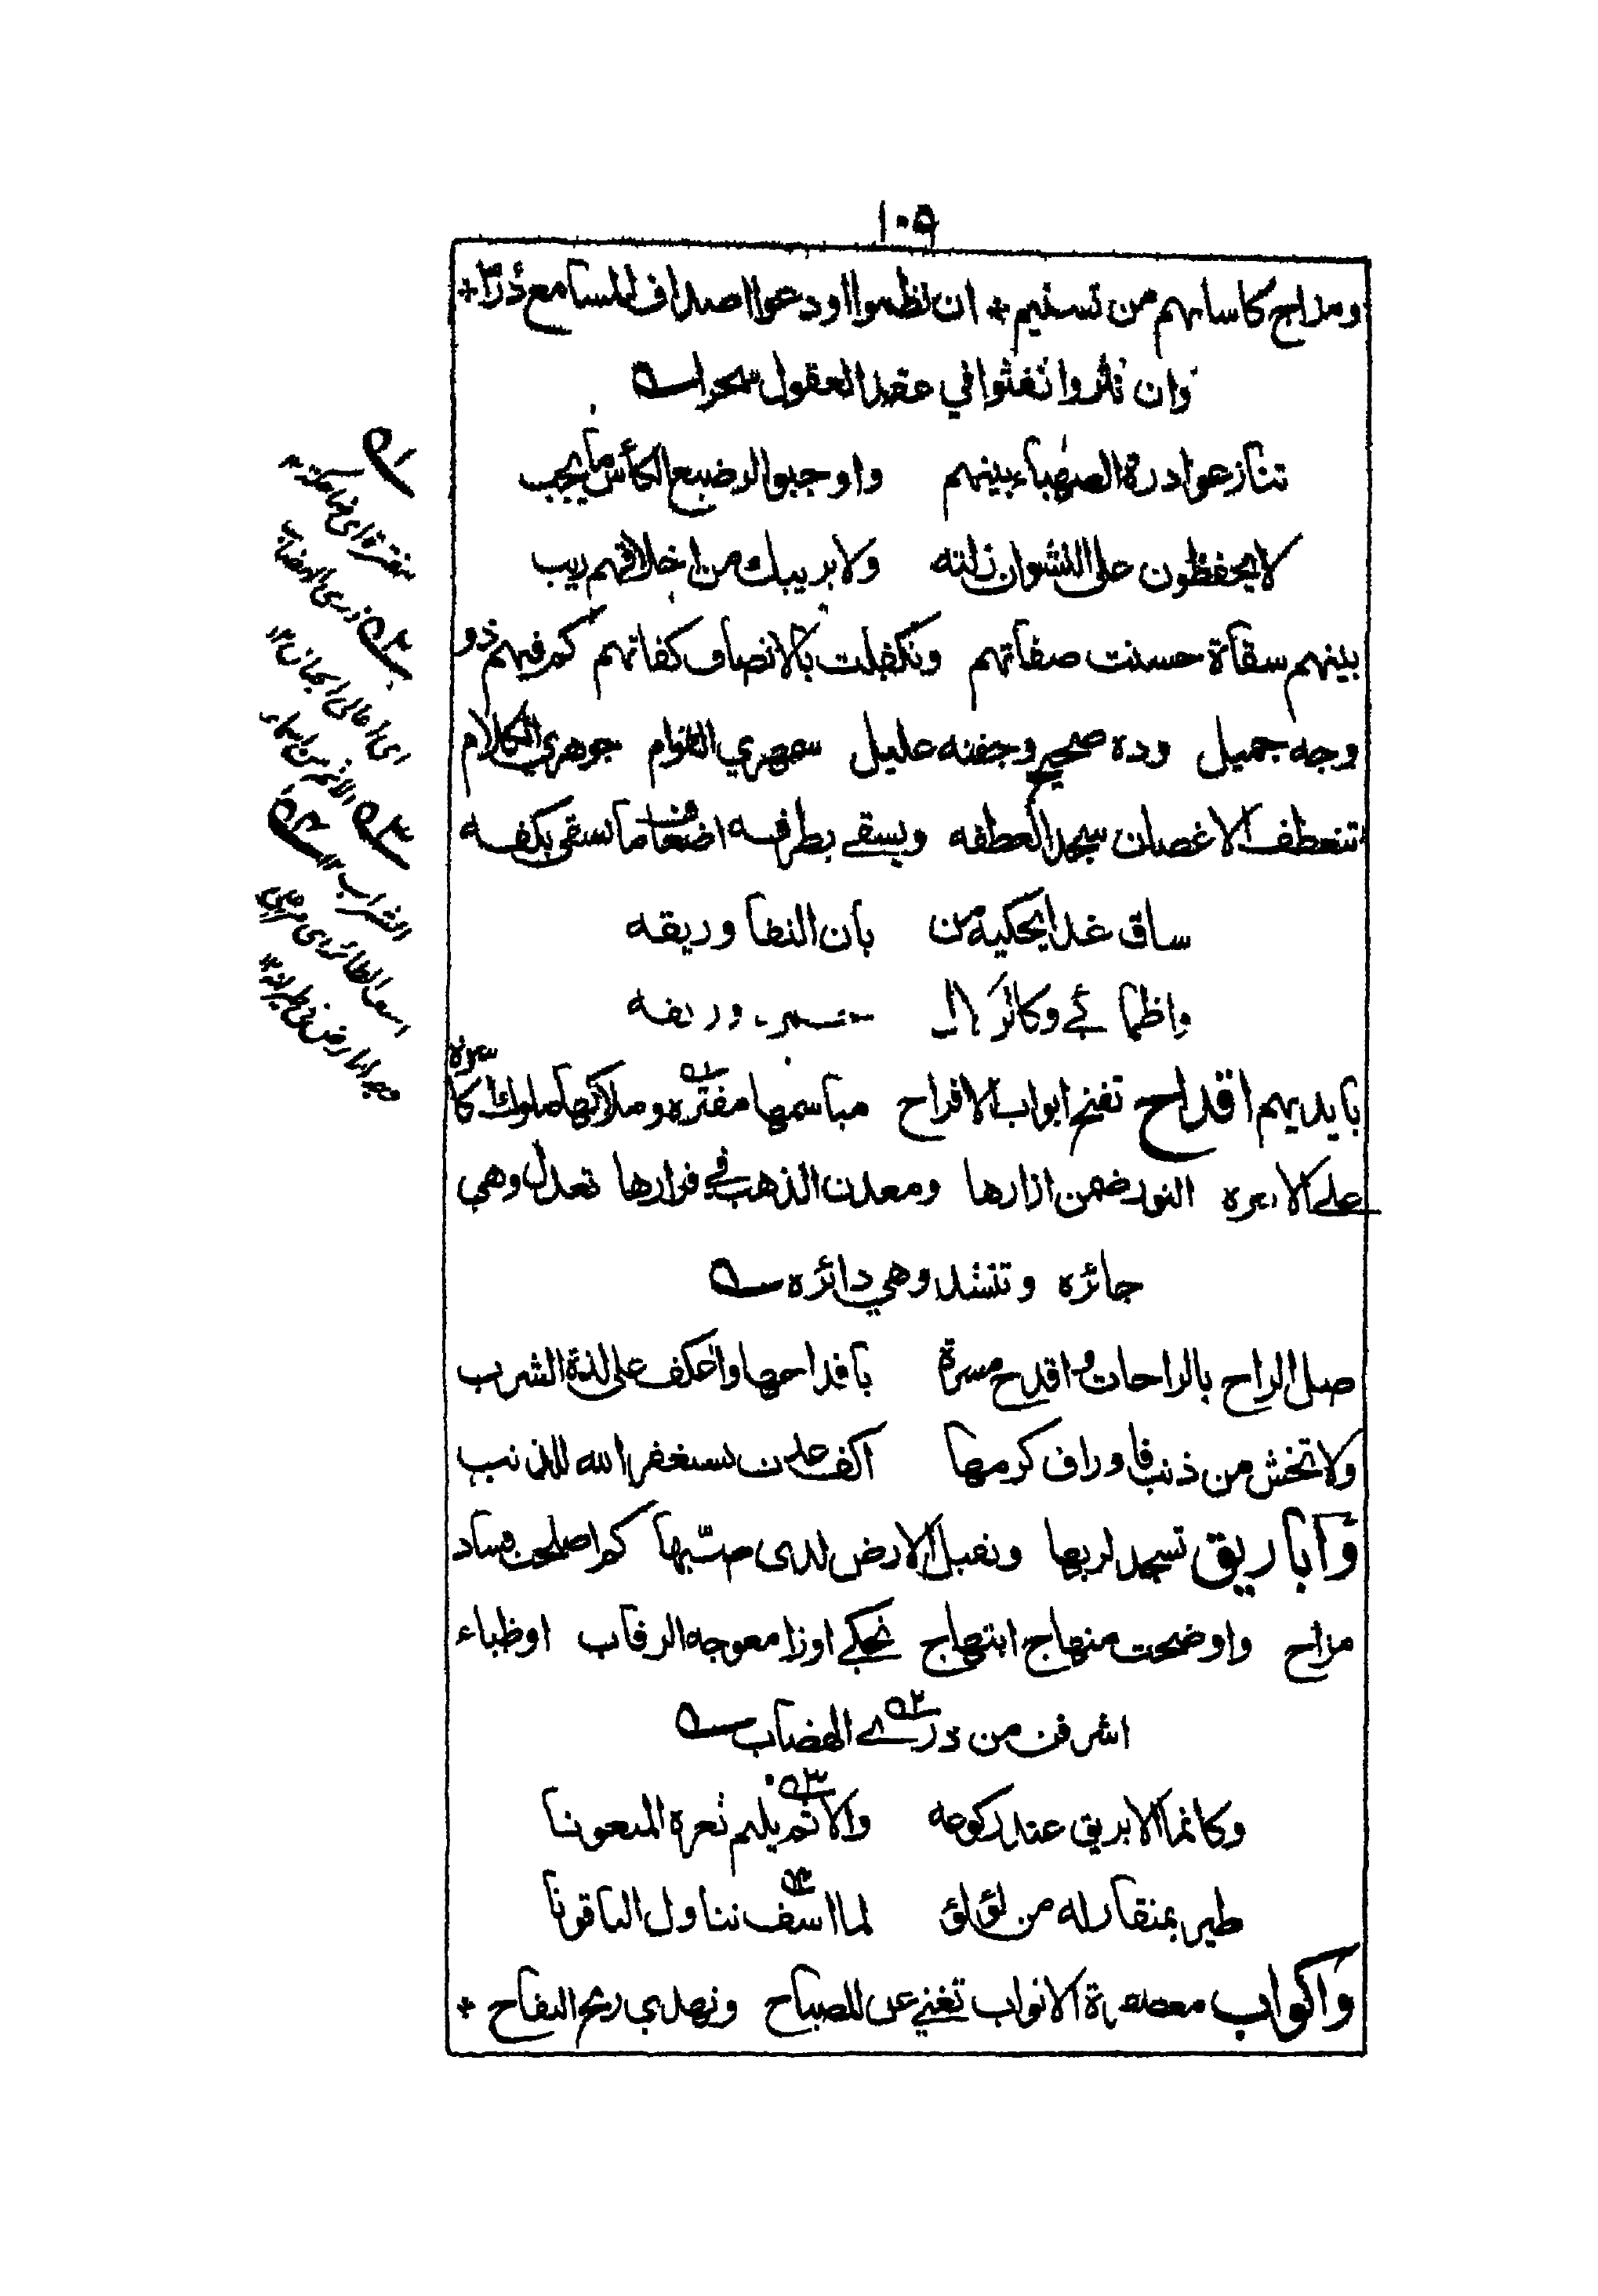 ١٠٩
ومزاج كاساتهم من تسنيم * ان نظموا اودعوا اصداف المسامع دُرّا *
وان نثروا نفثوا في عقد العقول سحرا
تنازعوا درة الصهباء بينهم واوجبوا لرضيع الكأس ما يجب
لا يحفظون على النشوان زلته ولا يريبك من اخلاقهم ريب
بينهم سقاة حسنت صفاتهم وتكفلت بالانصاف كفاتهم كم فيهم ذو
وجه جميل وده صحيح وجفنه عليل سمهري القوام جوهري الكلام
تنعطف الاغصان سجدا لعطفه ويسقي بطرفه اضعاف ما تسقى بكفه
ساق غدا يحكيه من بان النقا وريقه
واظمائي وكاتر
بايديهم اقداح تفتح ابواب الافراح مباسمها مفتره وملاكها ملوك كا
سره
على الاسره النور ضمن ازارها ومعدن الذهب في قرارها تعدل وهي
جائزه وتنشد وهي دائره
صل الراح بالراحات واقدح مسرة باقداحها واعكف على لذة الشرب
ولا تخش من ذنب فاوراق كرمها اكف غدت تستغفر الله للذنب
وأباريق تسجد لربها وتقبل الارض لدى صبّها كم اصلحت فساد
مزاح واوضحت منهاج ابتهاج تحكي اوزا معوجه الرقاب او ظباء
اشرفن من ذرى الهضاب
وكانما الابريق عند ركوعه والاثم يلثم ثغره المنعوتا
طير بمنقار له من لؤلؤ لما اسف تناول الياقوتا
واكواب معصرة الاثواب تغني عن المصباح وتهدي ريح التفاح *
١
مفترة اى ضاحكة ١٢
٢ ذرى الهضاب
اى اعالى الجبال ١٢
٣ الاثم من اسماء
الشراب ١٢ ٤
اسف الطائر اى مر على
وجه الارض في طيرانه ١٢